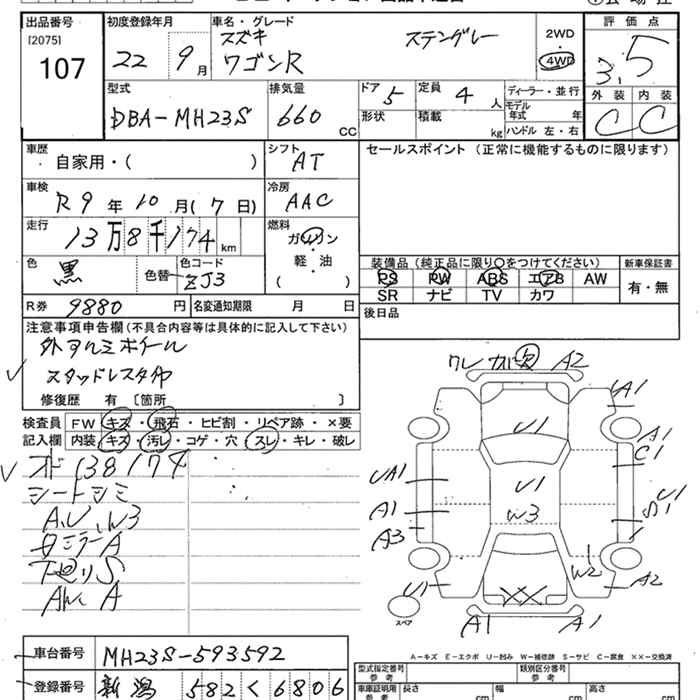 出品番号
[2075]
107
初度登録年月
22 9月
車名・グレード
スズキ ステングレー
ワゴンR
2WD
・
4WD
評価点
3.5
外装 内装
C C
型式
DBA-MH23S
排気量
660 CC
ドア 5
形状
定員 4 人
積載 kg
ディーラー・並行
モデル
年式 年
ハンドル 左・右
車歴
・自家用・( )
シフト
AT
セールスポイント (正常に機能するものに限ります)
車検
R9年10月(7日)
冷房
AAC
走行
13万8千174km
燃料
ガソリン
軽・油
( )
色
黒
色替
色コード
ZJ3
装備品(純正品に限り〇をつけてください)
PS PW ABS エアB AW
SR ナビ TV カワ
新車保証書
有・無
R券 9880円
名変通知期限 月 日
後日品
注意事項申告欄(不具合内容等は具体的に記入して下さい)
外アルミホイール
スタッドレスタイヤ
修復歴 有 〔箇所 〕
検査員
記入欄
FW キズ・飛石・ヒビ割・リペア跡・×要
内装 キズ・汚レ・コゲ・穴・スレ・キレ・破レ
オド138174
シートシミ
A、U、W3
ミラーA
下廻りS
A
ワレ カル欠 A2
A1
U1
A1
C1
UA1
U1
U1
S1
A1
W3
A3
W2
U1
XX
A2
スペア
A1
A1
A…キズ E…エクボ U…凹み W…補修跡 S…サビ C…腐食 ××…交換済
車台番号 MH23S-593592
登録番号 新潟 582 く 6806
型式指定番号
参考
類別区分番号
参考
車庫証明用
参考
長さ cm
幅 cm
高さ cm